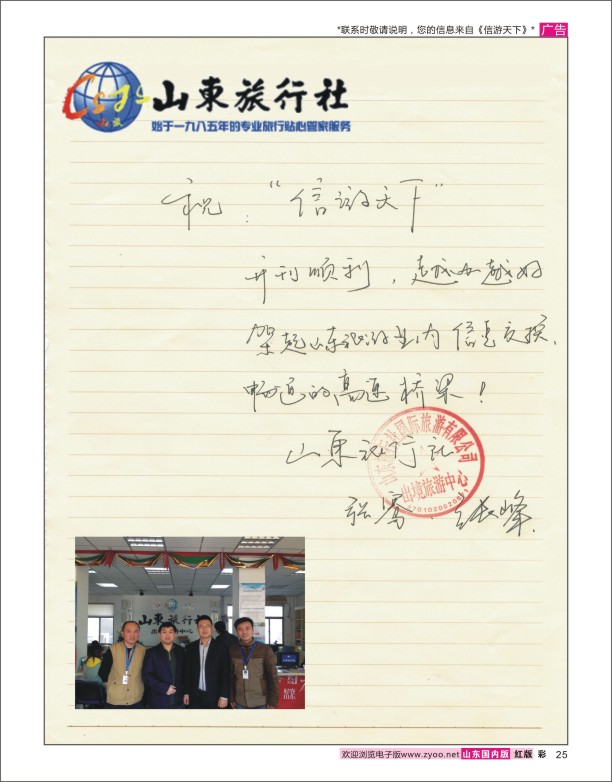 *联系时敬请说明，您的信息来自《信游天下》*
广告
山東旅行社
始于一九八五年的专业旅行贴心管家服务
祝："信游天下"
开刊顺利，越办越好
架起山东旅游业内信息交换、
畅通的高速桥梁！
山东旅行社
国际旅游有限公司
出境旅游中心
山東旅行社
欢迎浏览电子版www.zyoo.net 山东国内版 红版 彩 25